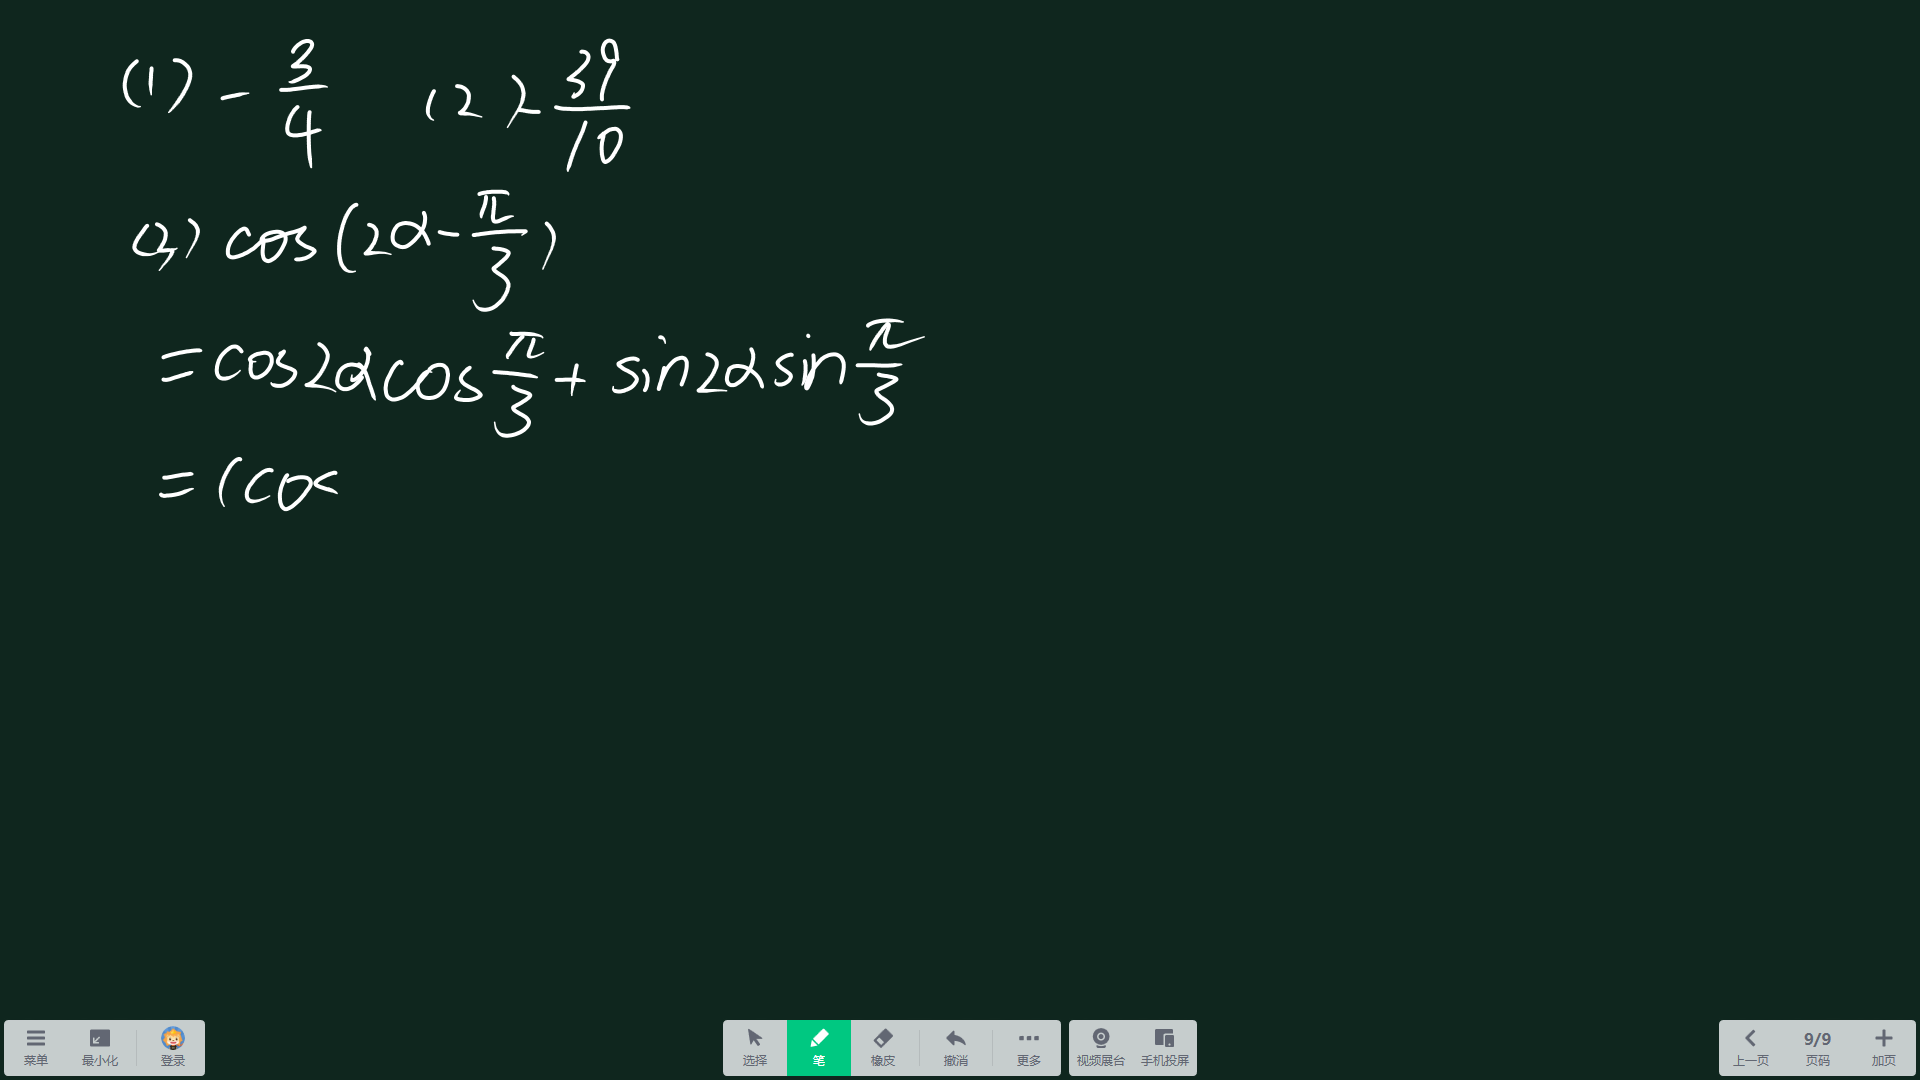 (1) -3/4 (2) -39/10
(3) cos(2α-π/3)
=cos2αcosπ/3+sin2αsinπ/3
=(cos
菜单 最小化 登录 选择 笔 橡皮 撤消 更多 视频展台 手机投屏 上一页 9/9 页码 加页